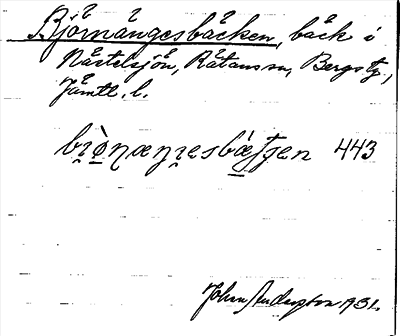 Björnängesbäcken, bäck i
Nästelsjön, Rätans sn, Bergs tg.,
Jämtl. l.
443
Johan Anderson 1931.